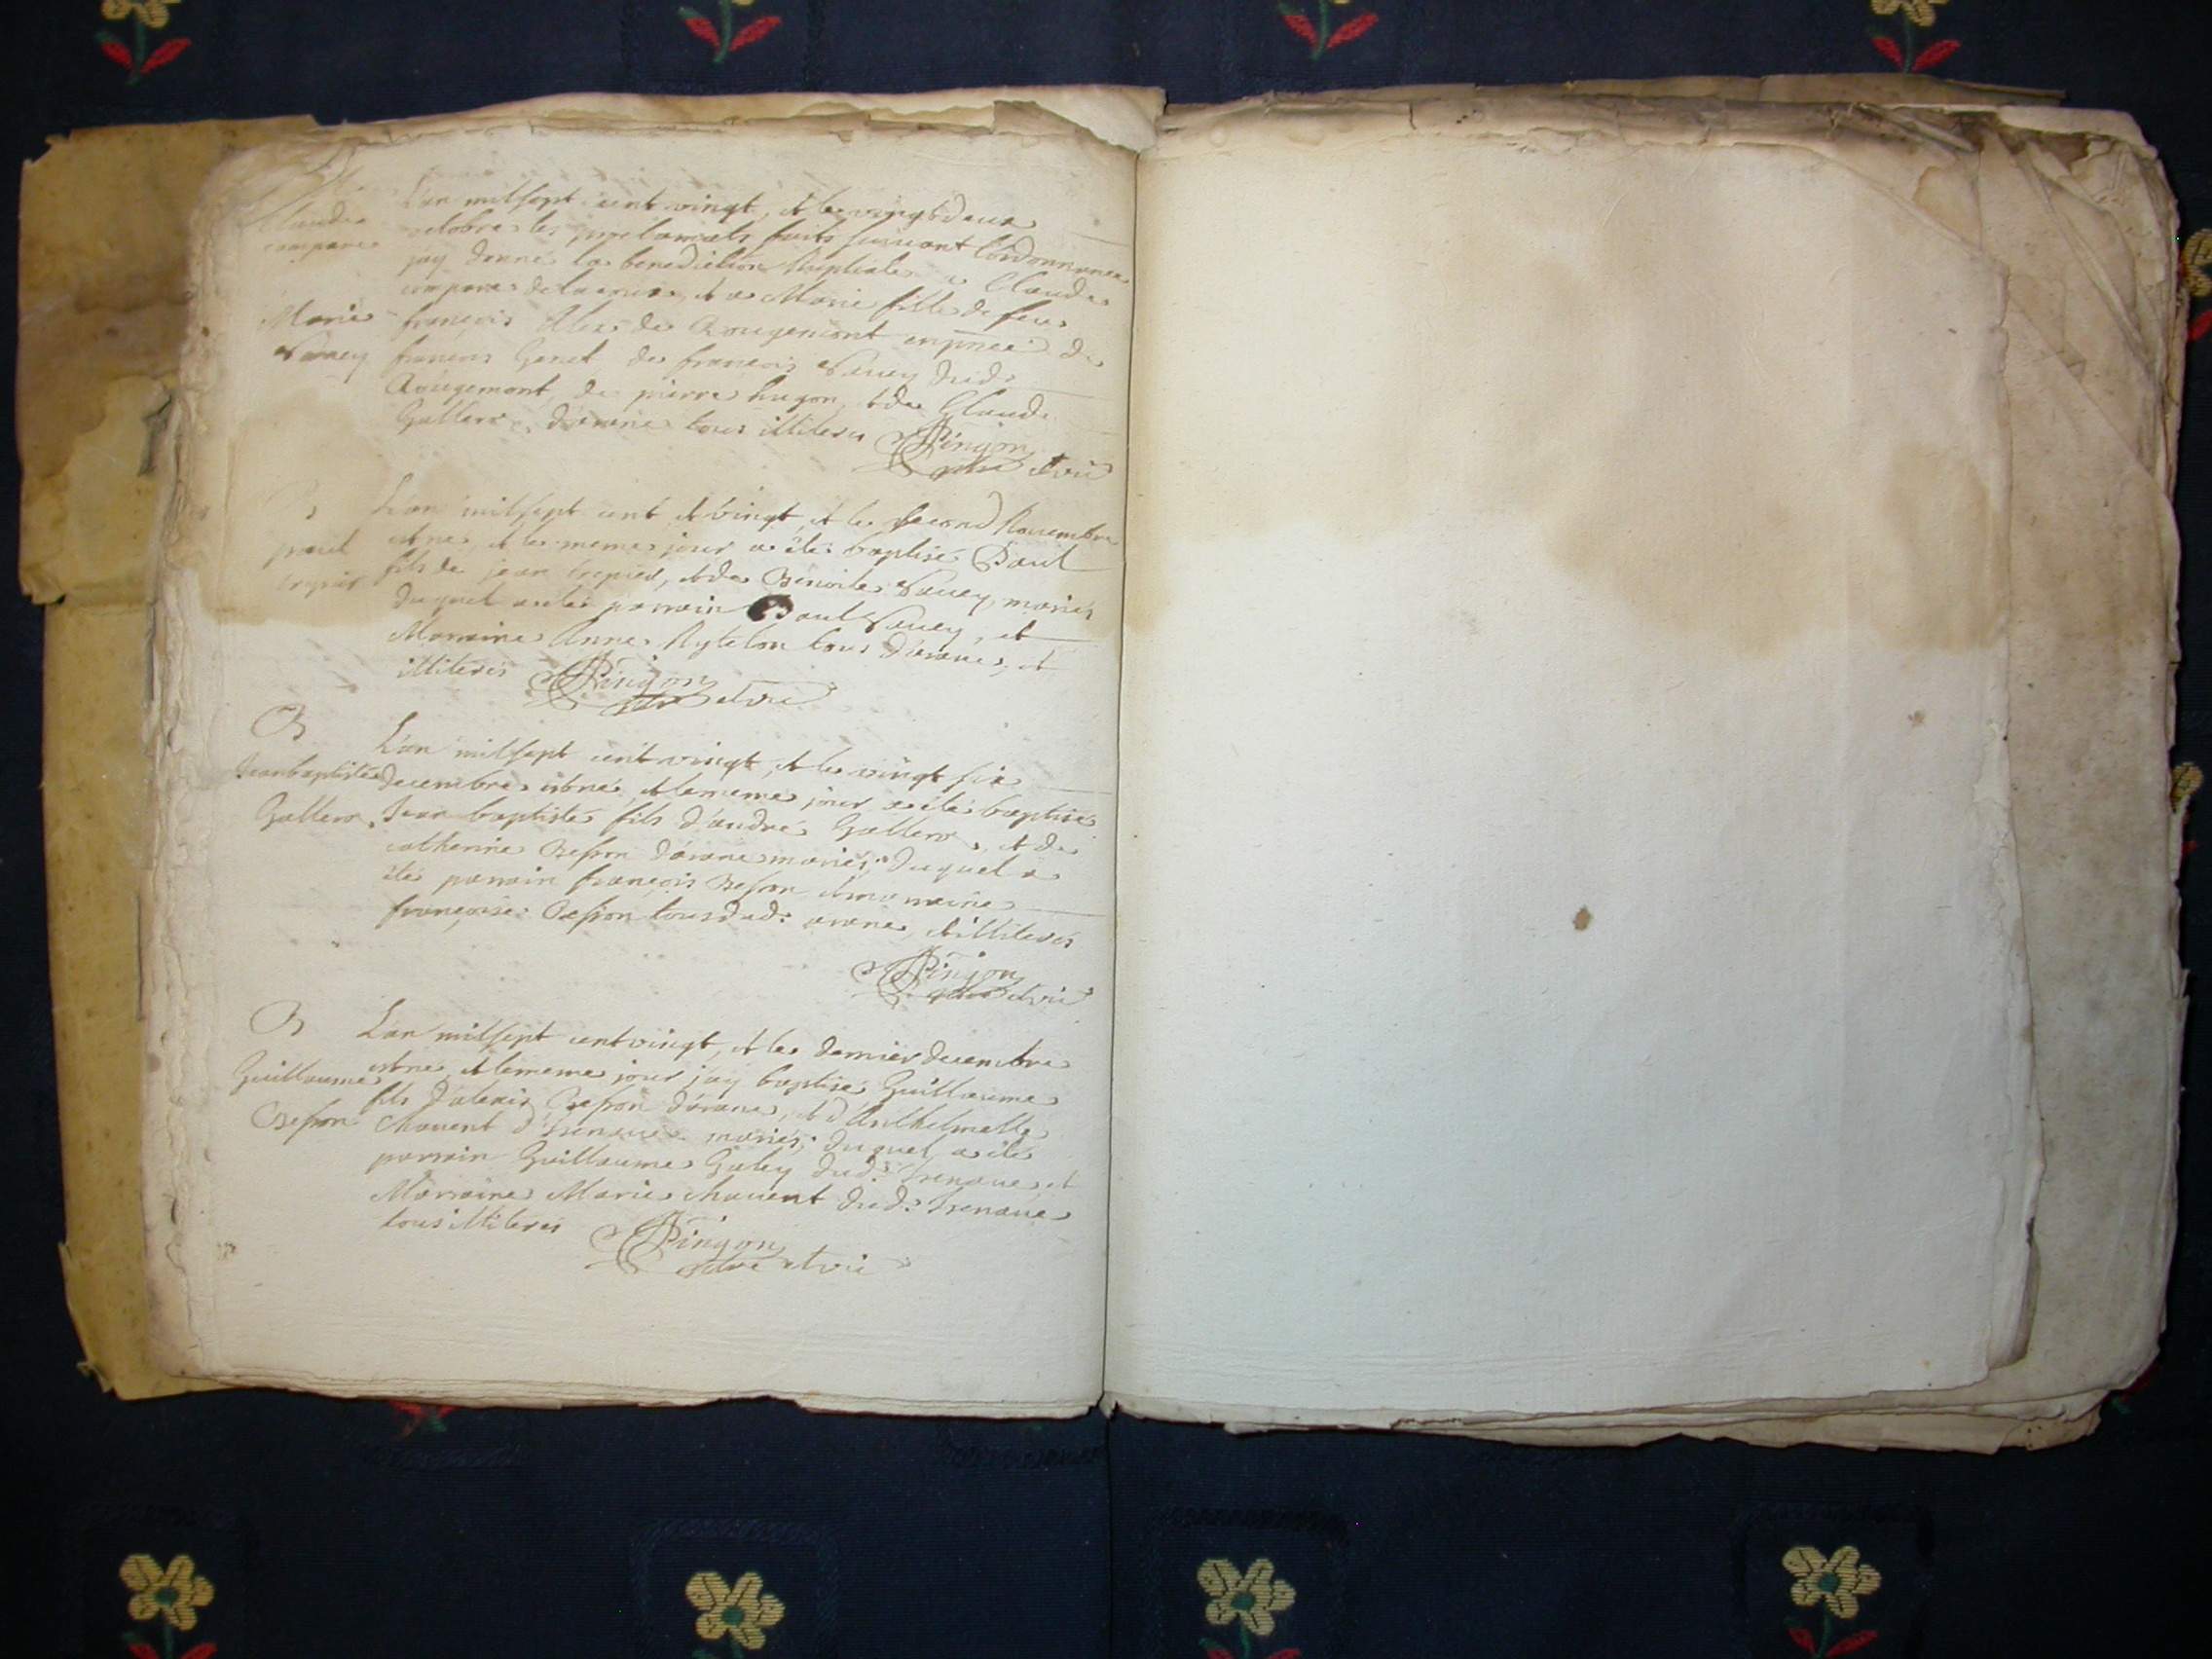 Claude
compare
Marie
L'an milsept cent vingt, et le vingtdeux
octobre les proclamats faits suivant l'ordonnance
jay donné la benediction Nuptiale a Claude
compare et a Marie fille de feu
françois de Rougemont en pnce de
françois Genet de françois Vauey dud:
Rougemont, de pierre hugon, et de Claude
Gallero, d'arane tous illiteres
Pingon
pbre et vic
B
paul
trepier
L'an milsept cent et vingt, et le second Novembre
est ne, et le meme jour a été baptisé Paul
fils de jean trepier, et de Benoite Vauey mariés
duquel a eté parrain Paul Vauey, et
Marraine Anne tous d'arane, et
illiterés
Pingon
pbre et vic
B
Jean baptiste
Gallero
L'an milsept cent vingt, et le vingt six
Decembre est né, et le meme jour a été baptisé
Jean baptiste fils d'andré Gallero, et de
catherine Besson d'arane mariés; duquel a
été parrain françois Besson et marraine
françoise Besson tous dud: arane, et illiterés
Pingon
pbre et vic
B
Guillaume
Besson
L'an milsept cent vingt, et le dernier decembre
est né, et le meme jour jay baptisé Guillaume
fils d'alexis Besson d'arane, et d'Anthelmette
Chauent d'Izenaue mariés; duquel a été
parrain Guillaume Galey dud: Izenaue, et
Marraine Marie chauent dud: Izenaue
tous illiterés
Pingon
pbre et vic